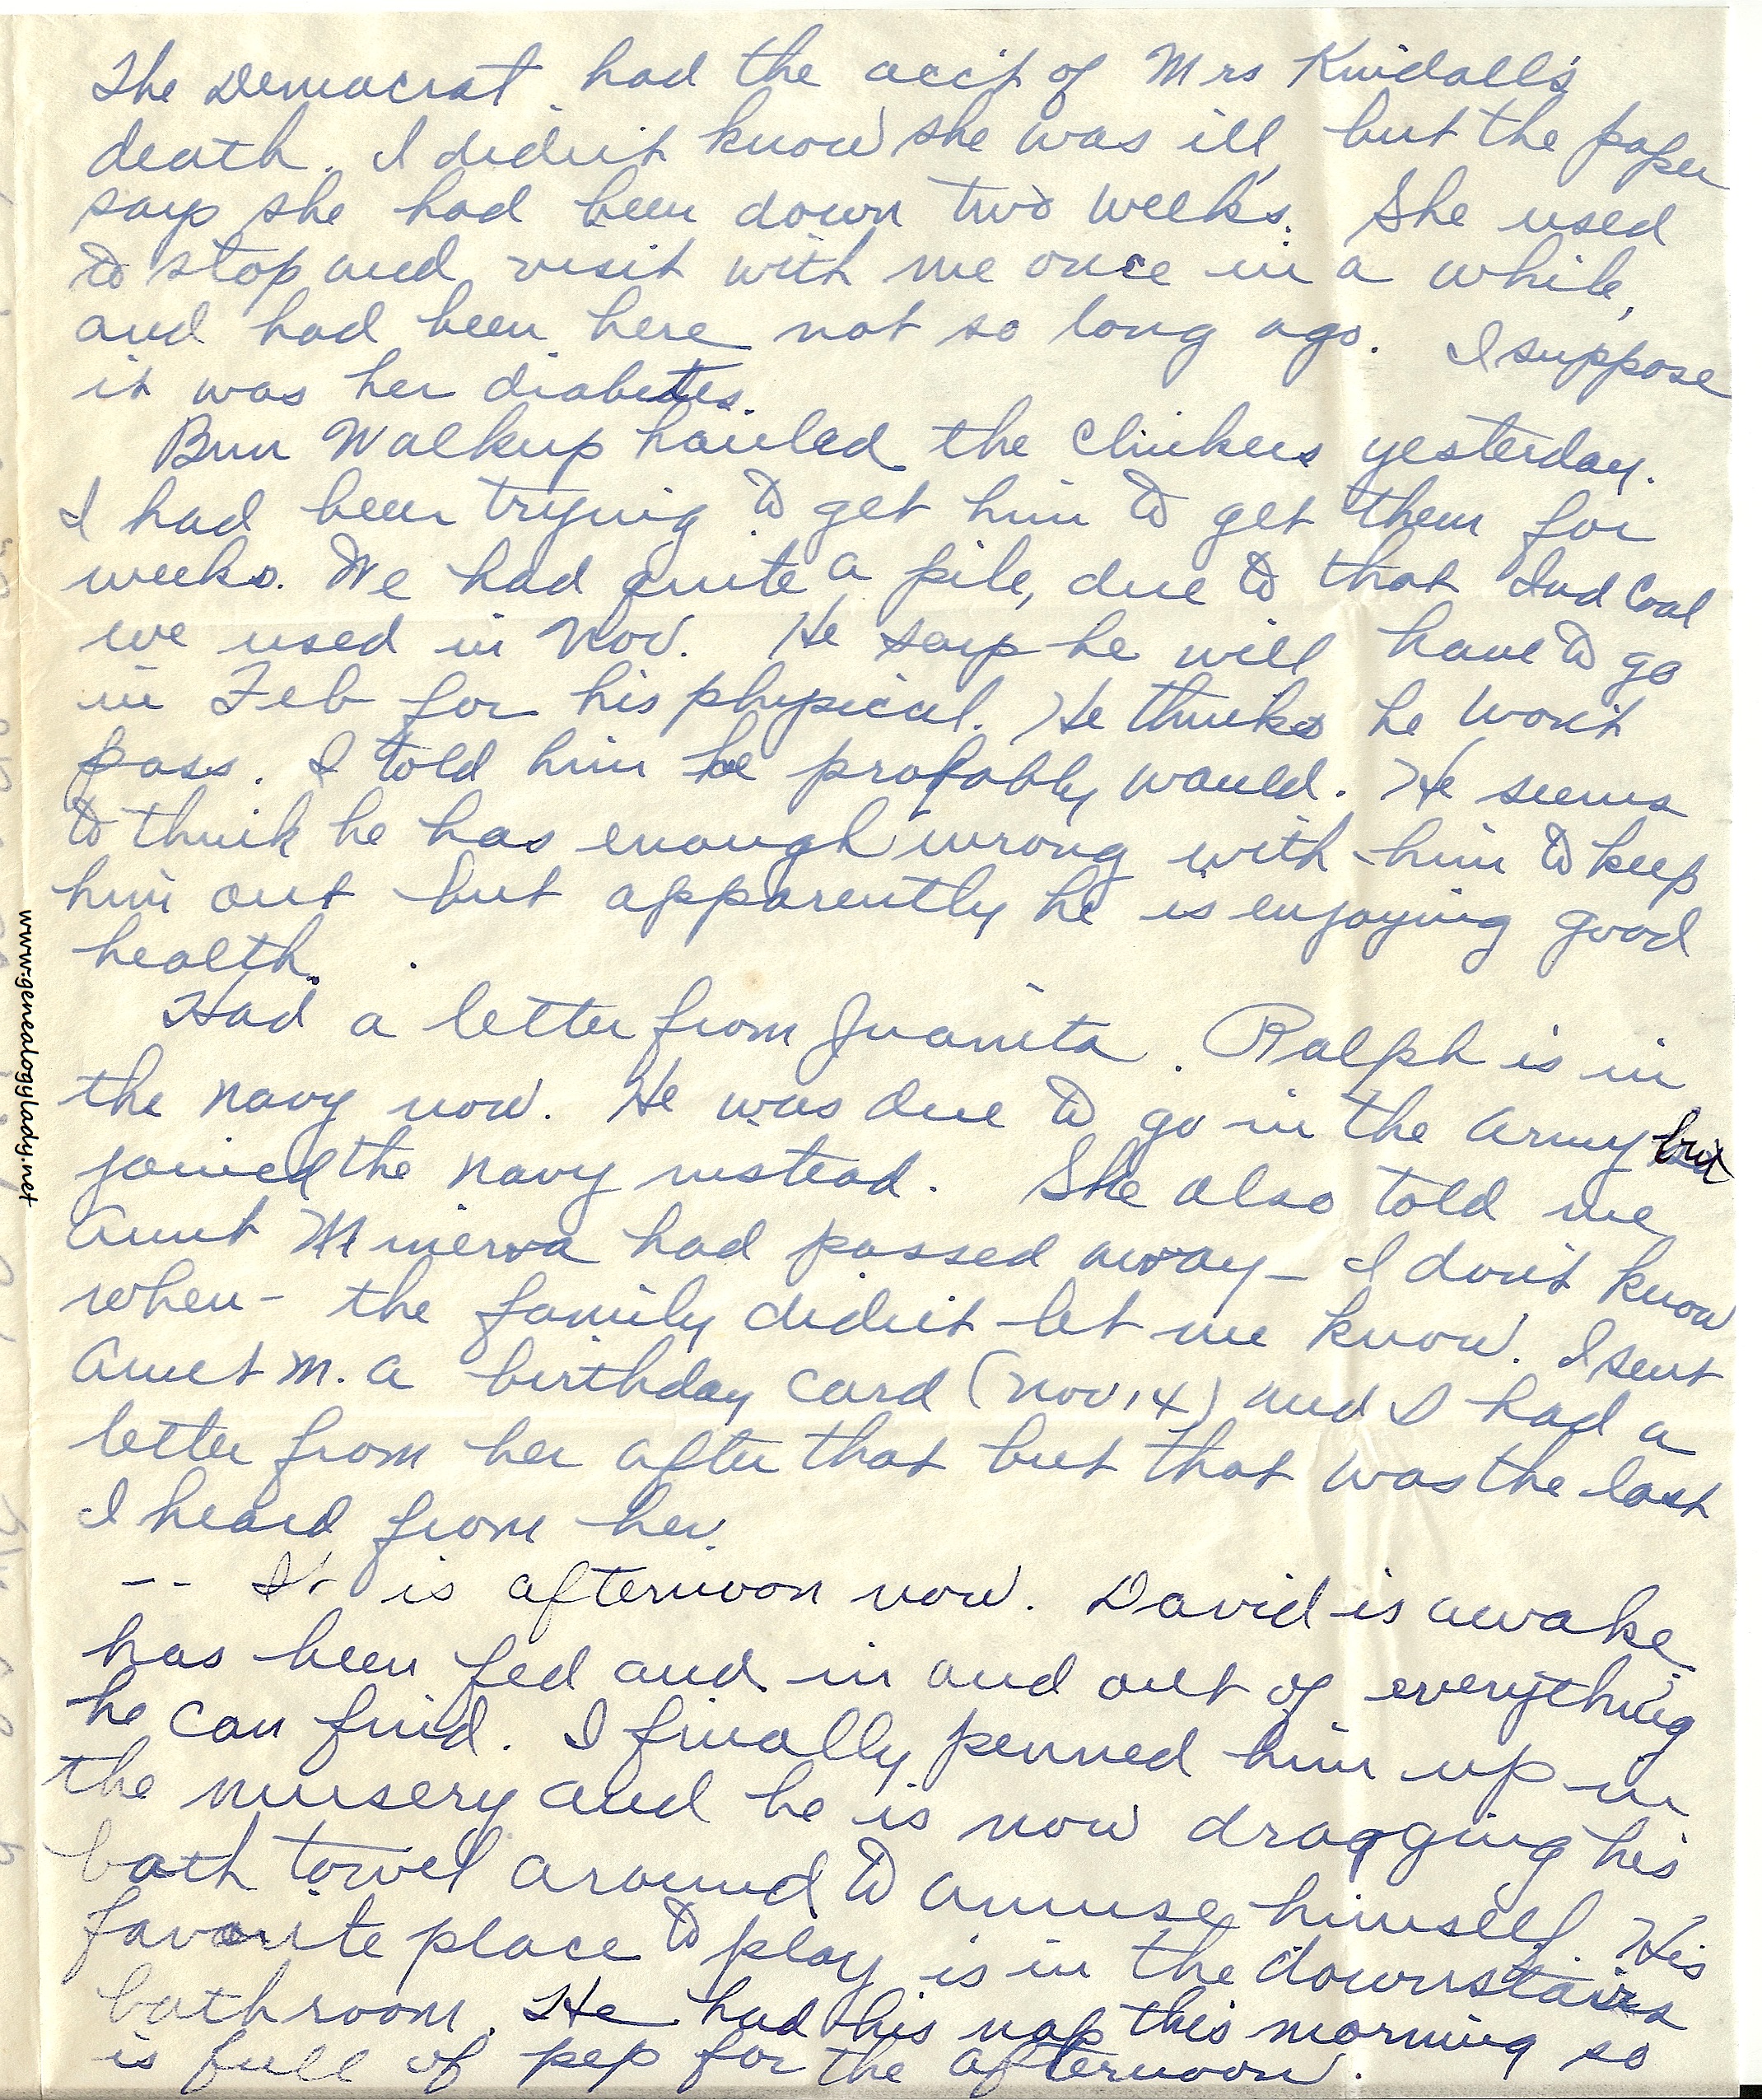 The Democrat had the acc't of Mrs Kindall's
death. I didn't know she was ill, but the paper
says she had been down two weeks. She used
to stop and visit with me once in a while,
and had been here not so long ago. I suppose
it was her diabetes.
Bun Walkup hauled the clinkers yesterday.
I had been trying to get him to get them for
weeks. We had quite a pile, due to that Ind Coal
we used in Nov. He says he will have to go
in Feb for his physical. He thinks he won't
pass. I told him he probably would. He seems
to think he has enough wrong with him to keep
him out but apparently he is enjoying good
health.
Had a letter from Juanita. Ralph is in
the navy now. He was due to go in the army but
joined the navy instead. She also told me
Aunt Minerva had passed away - I don't know
when - the family didn't let me know. I sent
Aunt M. a birthday card (Nov 14) and I had a
letter from her after that but that was the last
I heard from her.
-- It is afternoon now. David is awake
has been fed and in and out of everything
he can find. I finally penned him up in
the nursery and he is now dragging his
bath towel around to amuse himself. His
favorite place to play is in the downstairs
bathroom. He had his nap this morning so
is full of pep for the afternoon.
www.genealogylady.net